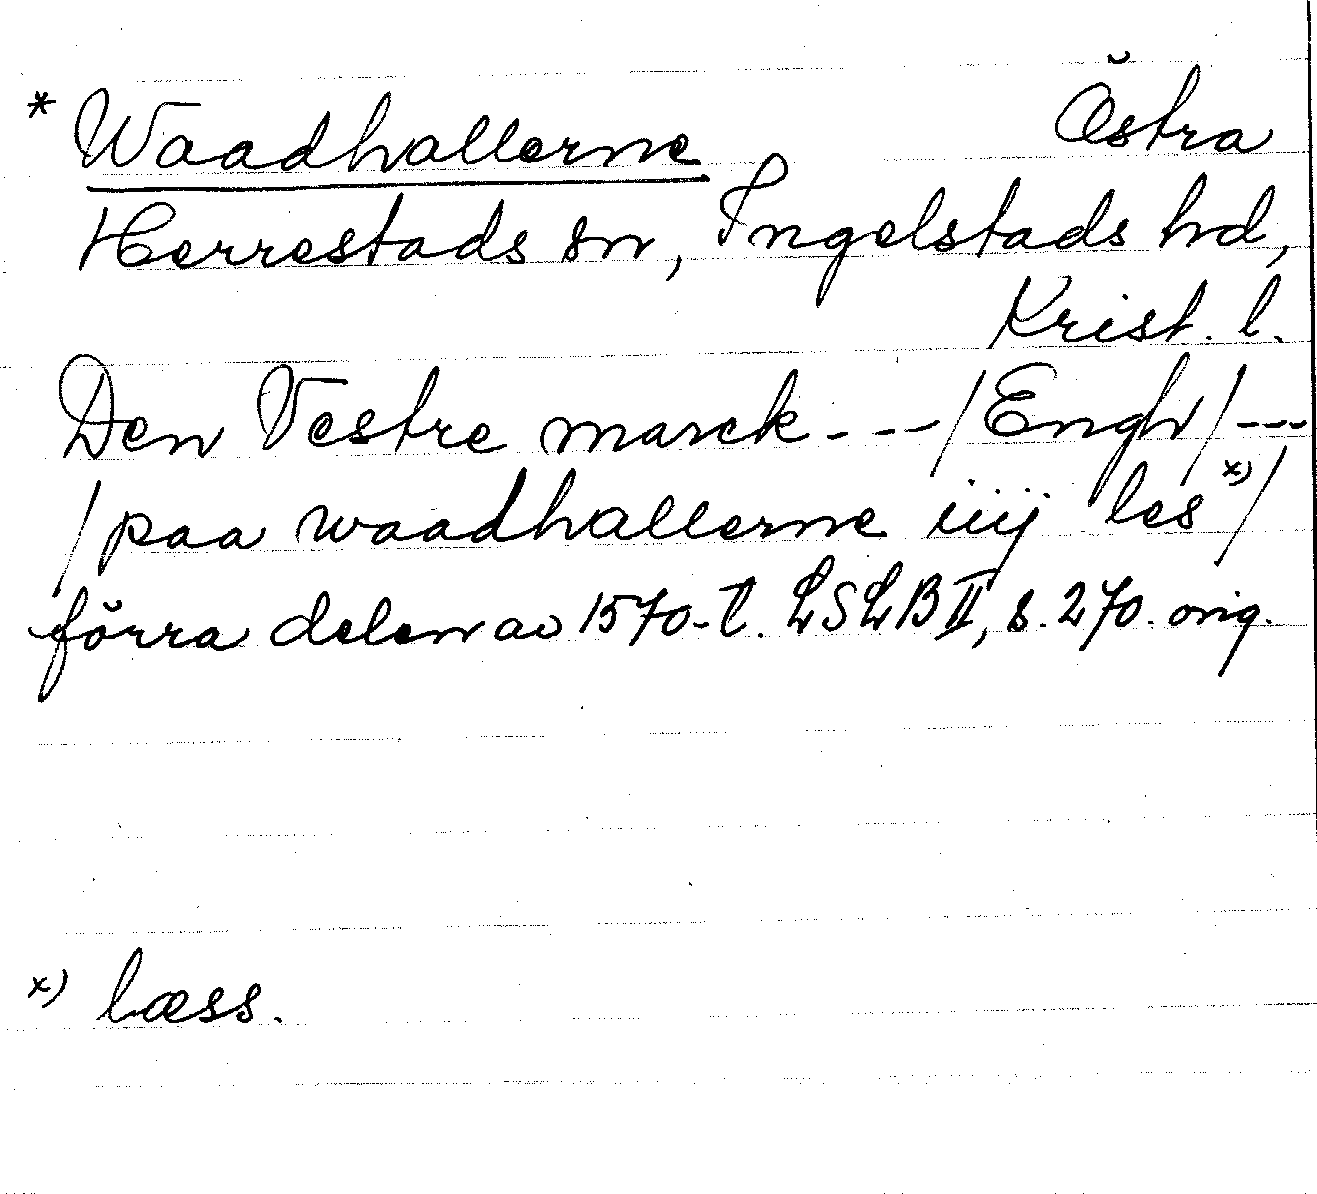 * Waadhallerne Östra
Herrestads sn, Ingelstads hd,
Krist. l.
Den Vestre marck - - - / Engh / - - -
/ paa waadhallerne iiij les x) /
förra delen av 1570-t. LSLB II, s. 270. orig.
x) læss.